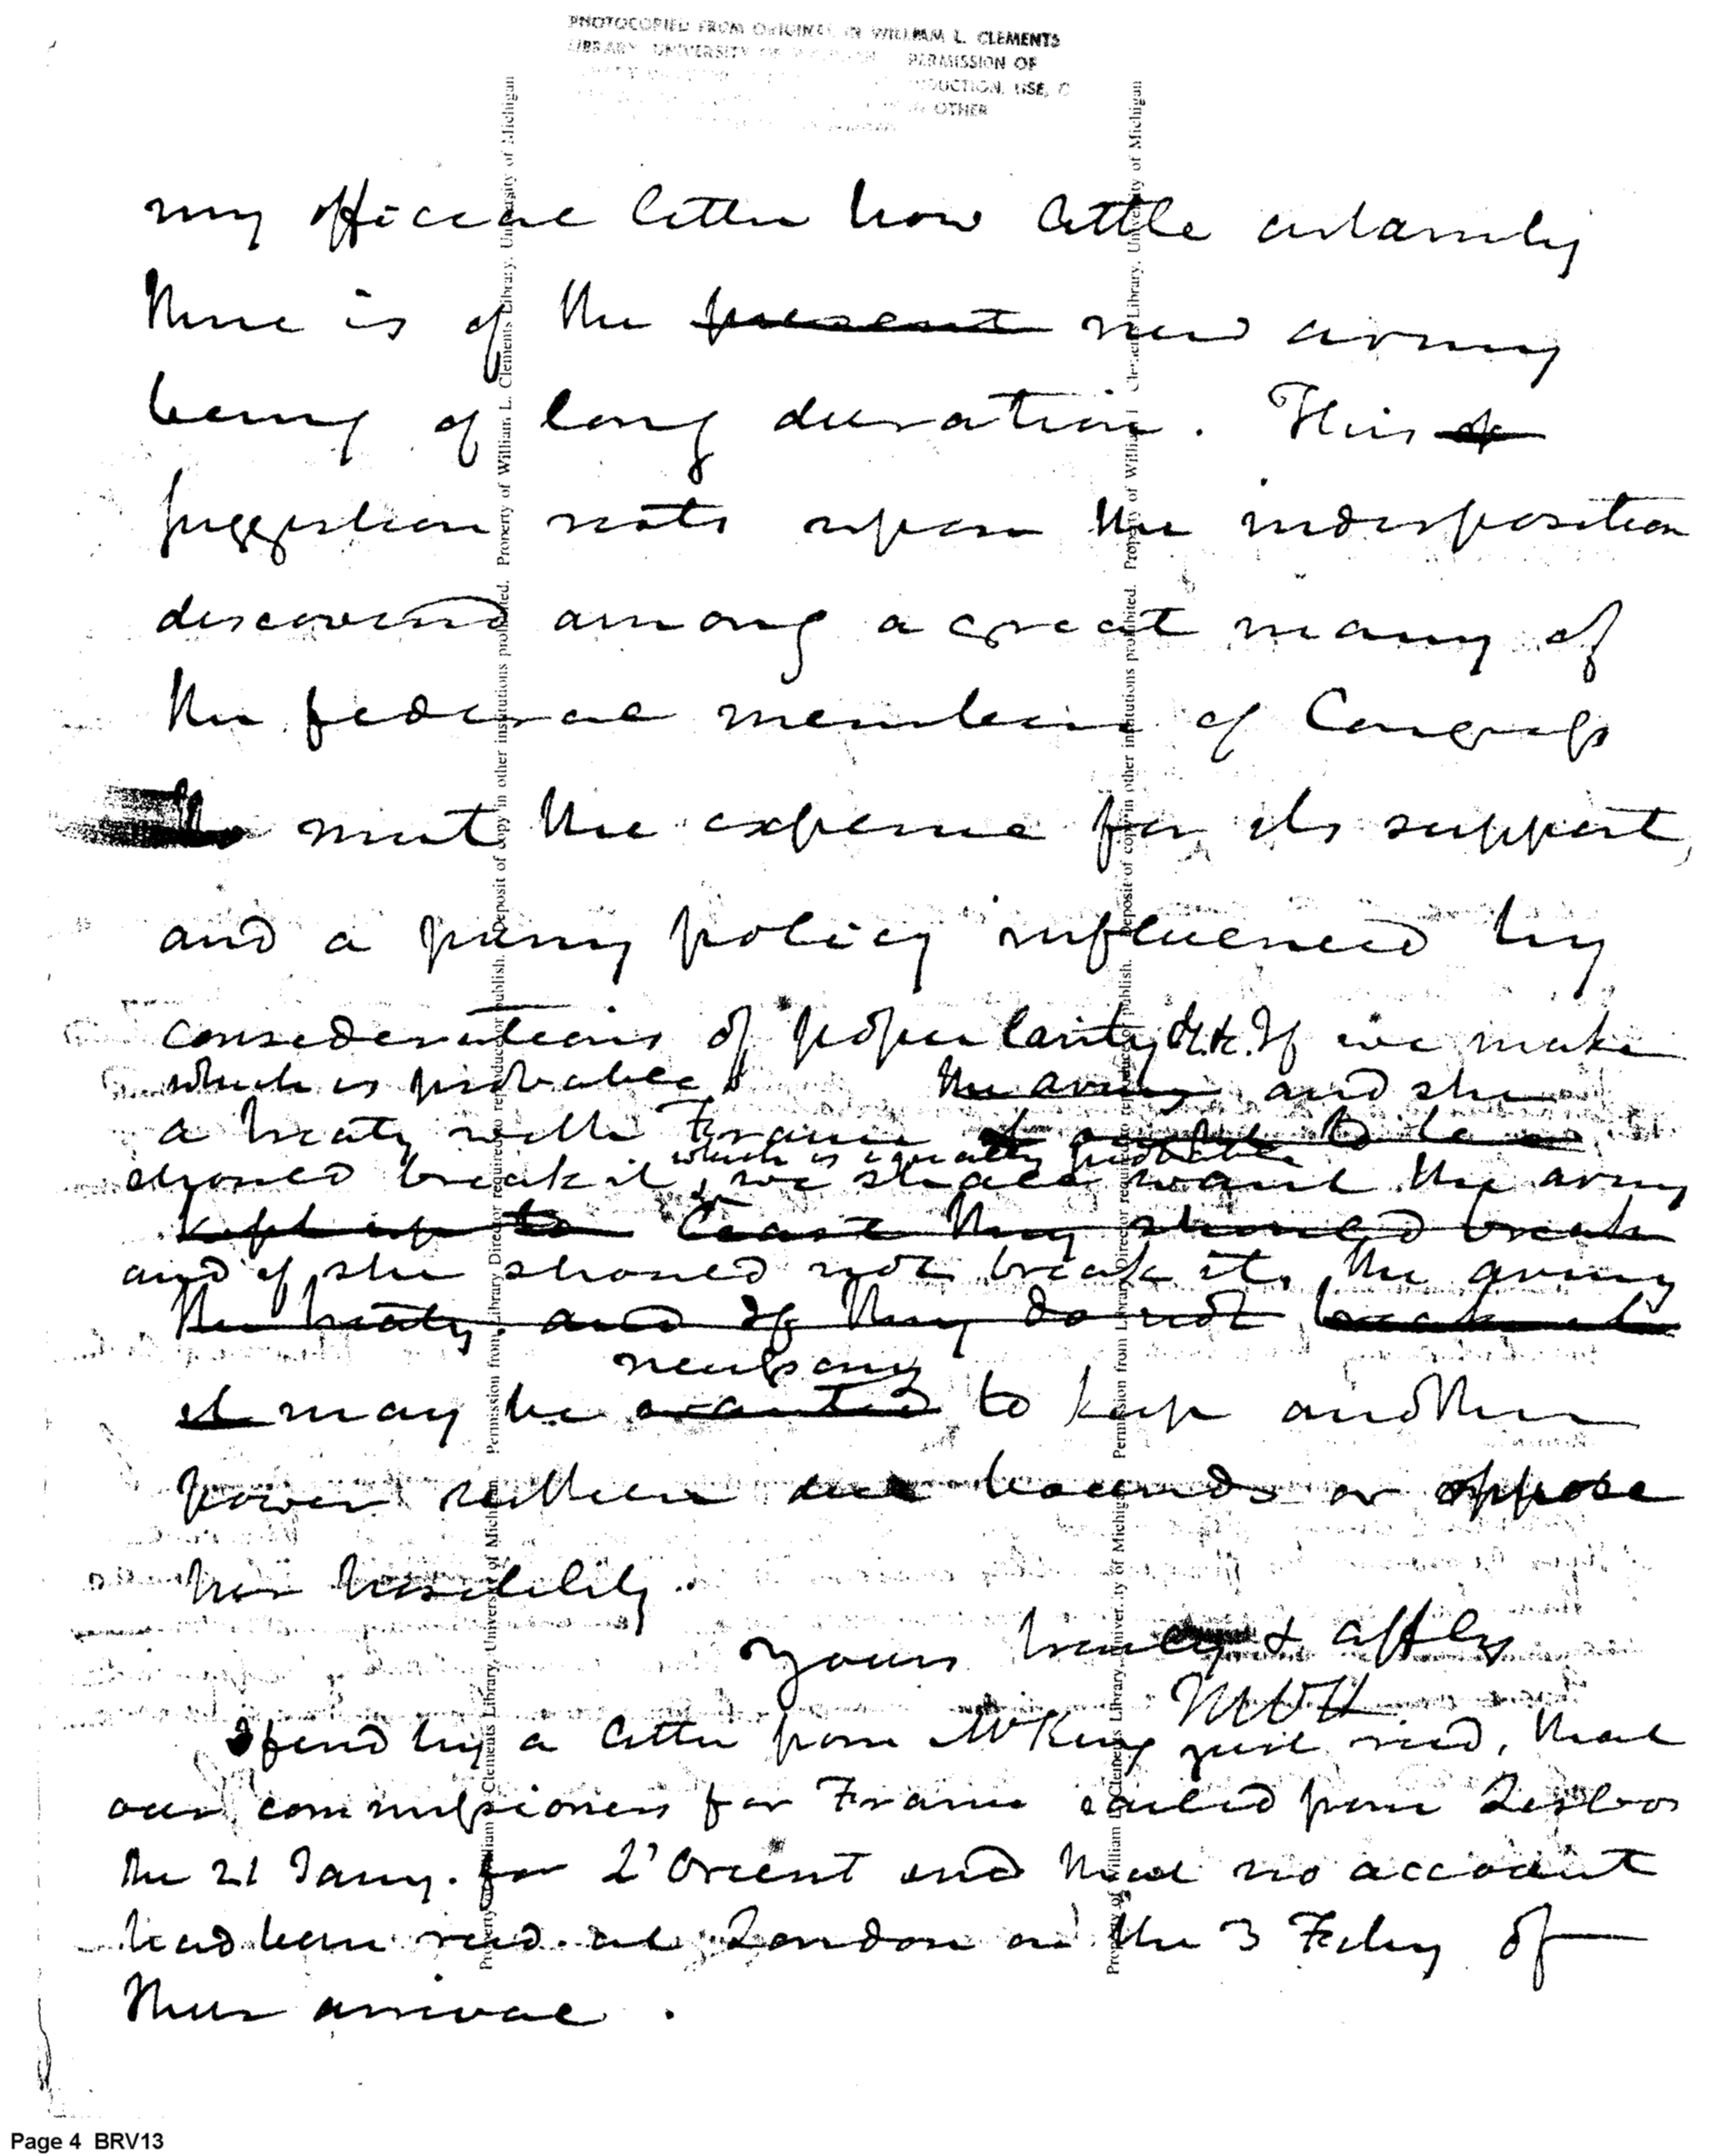 PHOTOCOPIED FROM ORIGINAL IN WILLIAM L. CLEMENTS
LIBRARY UNIVERSITY OF PERMISSION OF
USE, O
OTHER
my official letter how little certainty
there is of the present new army
being of long duration. This
suggestion rests upon the indisposition
discovered among a great many of
the federal members of Congress
meet the expense for its support,
and a puny policy influenced by
considerations of popularity &c. If we make
which is probable the army and she
a treaty with France to be
should break it, we shall want the army
which is equally probable
kept up to least they should break
and if she should not break it, the army
the treaty and if they do not break it
necessary
it may be wanted to keep another
power within due bounds or oppose
her hostility.
yours truly & affly
McH
I find by a letter from Mr King just recd, that
our commissioners for France sailed from Lisbon
the 21 Jany. for L'Orient and that no account
had been recd. at London on the 3 Feby of
their arrival.
Property of William L. Clements Library, University of Michigan. Permission from Library Director required to reproduce or publish. Deposit of copy in other institutions prohibited. Property of William L. Clements Library, University of Michigan
Property of William L. Clements Library, University of Michigan. Permission from Library Director required to reproduce or publish. Deposit of copy in other institutions prohibited. Property of William L. Clements Library, University of Michigan
Page 4 BRV13